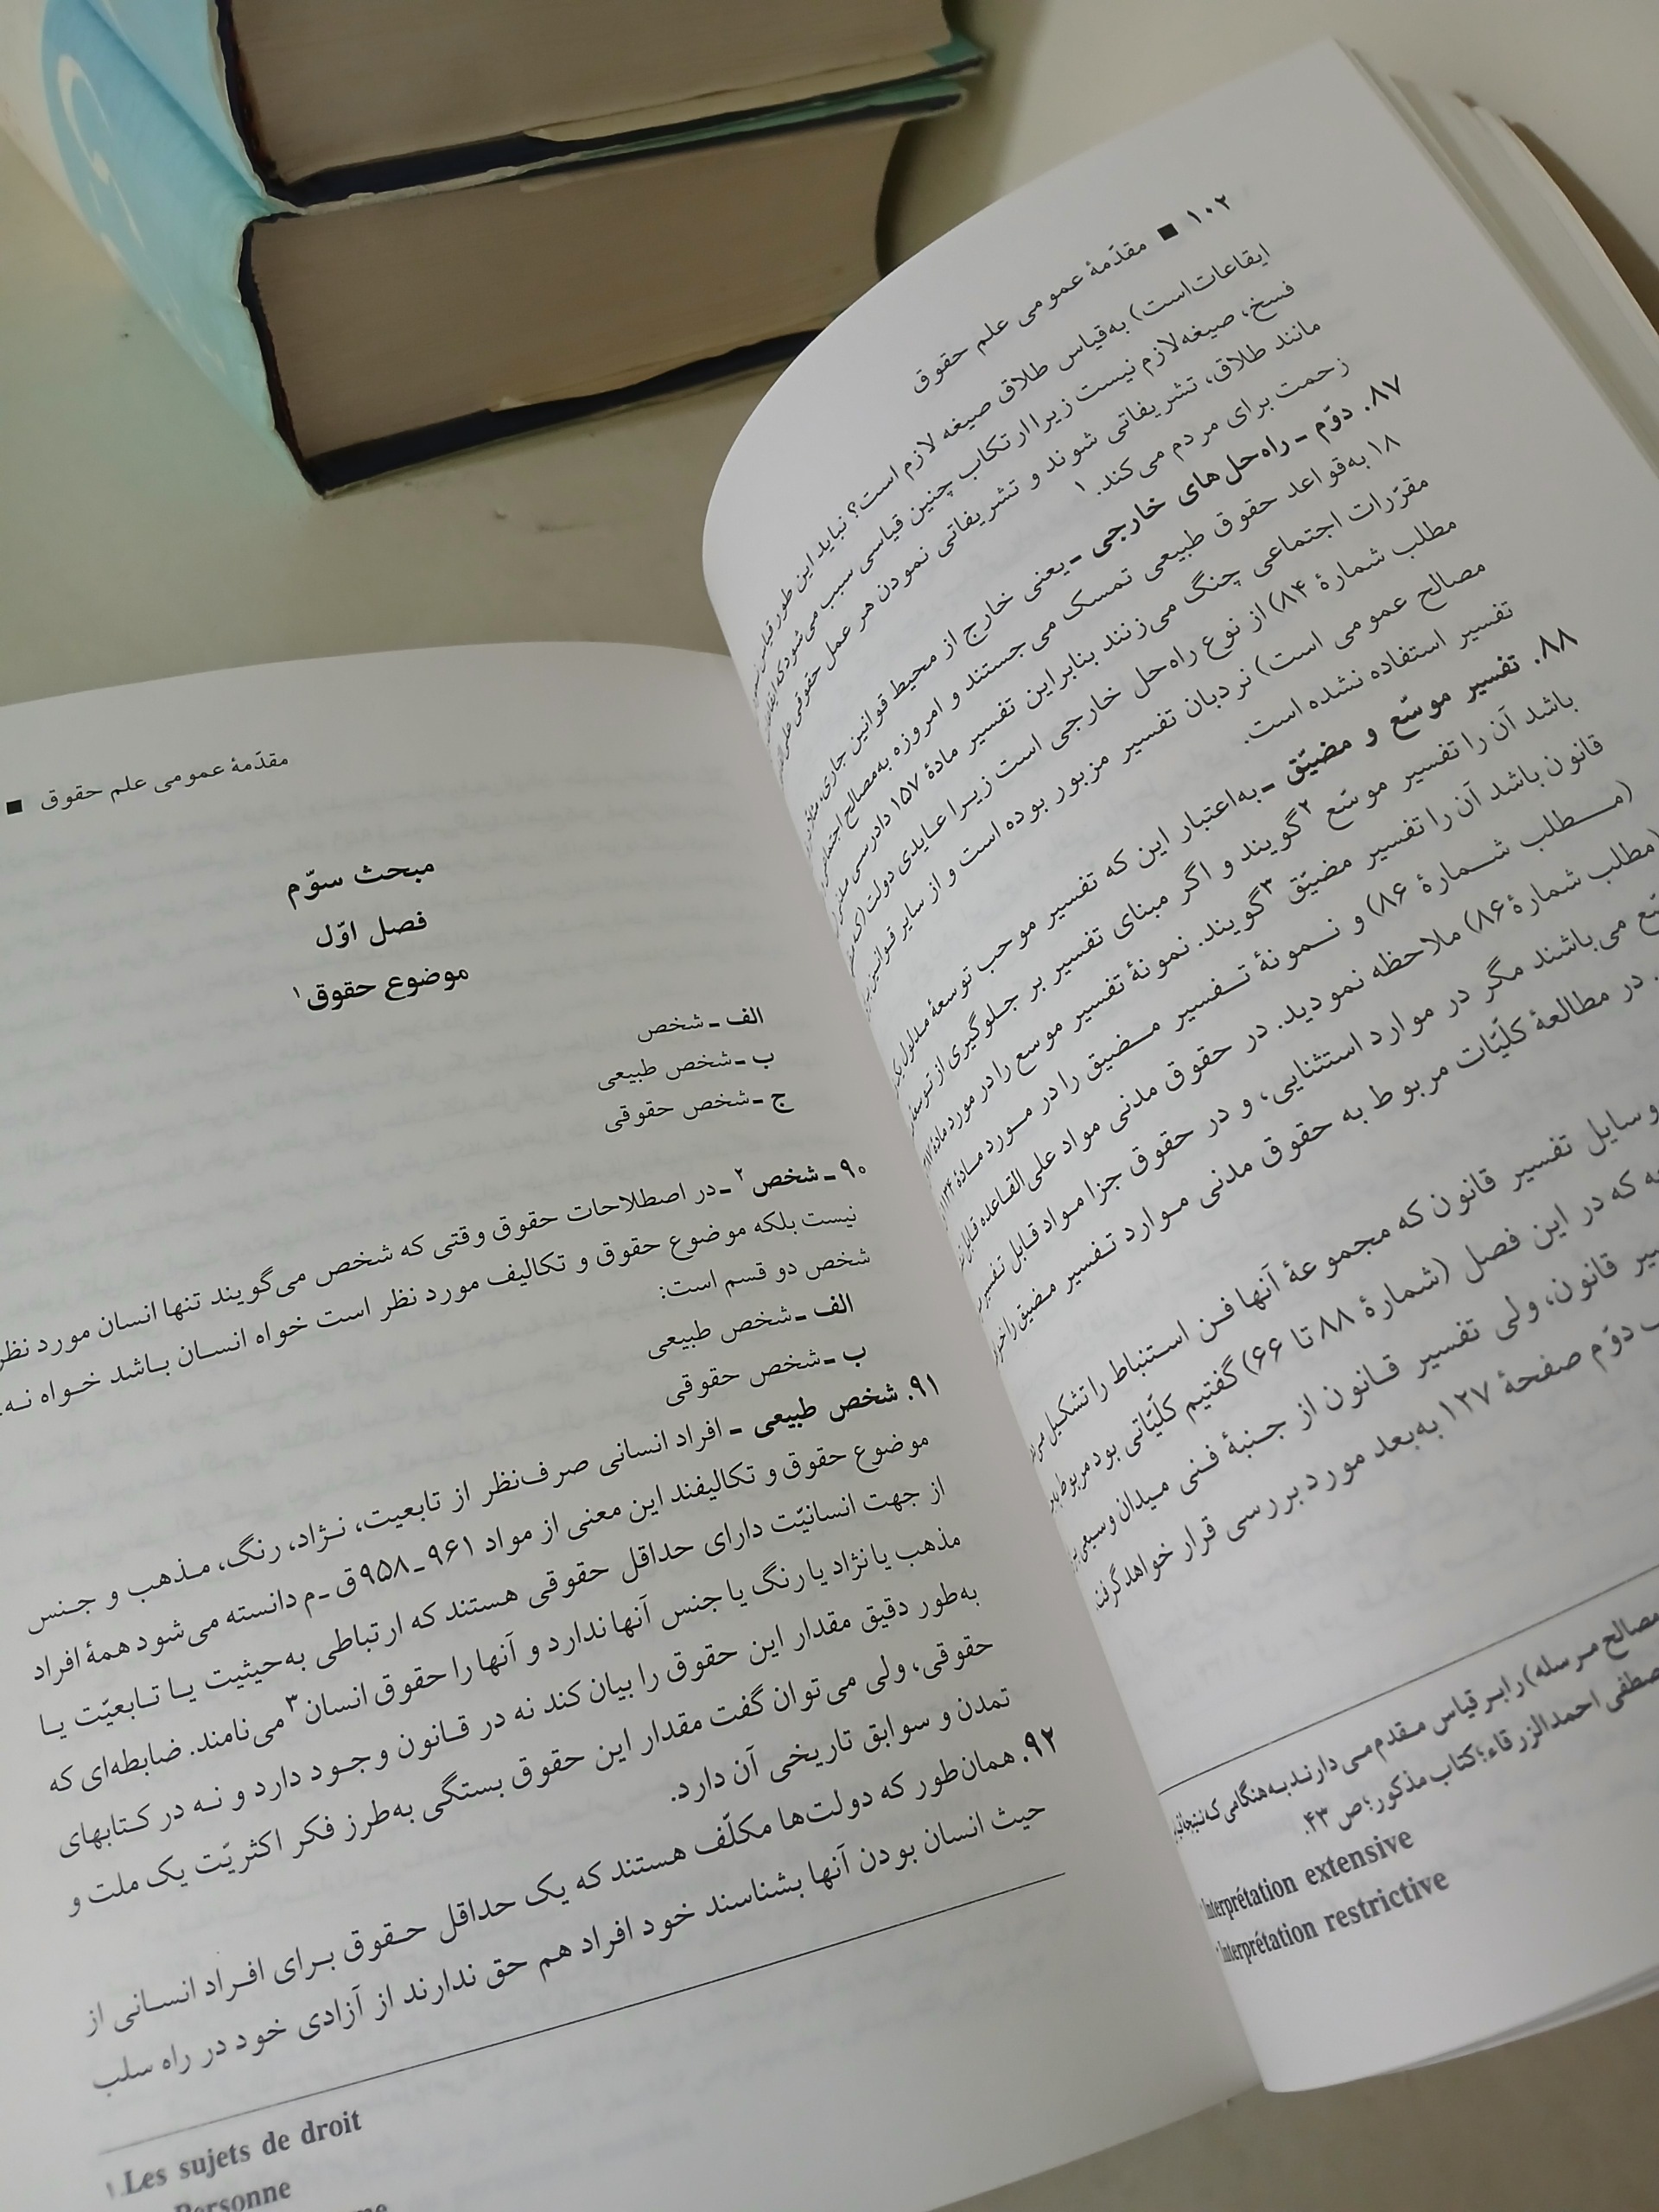 ۱۰۲ ■ مقدّمهٔ عمومی علم حقوق
ایقاعات‌است) به‌قیاس طلاق صیغه لازم است؟ نباید این طور قیاس
فسخ، صیغه‌لازم نیست زیرا ارتکاب چنین قیاسی سبب می‌شود که
مانند طلاق، تشریفاتی شوند و تشریفاتی نمودن هر عمل حقوقی
زحمت برای مردم می‌کند.۱
۸۷. دوّم ـ راه‌حل‌های خارجی ـ یعنی خارج از محیط قوانین جاری،
۱۸ به‌قواعد حقوق طبیعی تمسک می‌جستند و امروزه به‌مصالح
مقرّرات اجتماعی چنگ می‌زنند بنابراین تفسیر مادهٔ ۱۵۷ دادرسی
مطلب شمارهٔ ۸۴) از نوع راه‌حل خارجی است زیرا عایدی دولت
مصالح عمومی است) نردبان تفسیر مزبور بوده است و از سایر قوانین
تفسیر استفاده نشده است.
۸۸. تفسیر موسّع و مضیّق ـ به‌اعتبار این که تفسیر موجب توسعهٔ مدلول
باشد آن را تفسیر موسّع۲ گویند و اگر مبنای تفسیر بر جلوگیری از توسعهٔ
قانون باشد آن را تفسیر مضیّق۳ گویند. نمونهٔ تفسیر موسع را در مورد مادهٔ
(مطلب شمارهٔ ۸۶) و نمونهٔ تفسیر مضیق را در مورد مادهٔ
(مطلب شمارهٔ ۸۶) ملاحظه نمودید. در حقوق مدنی مواد علی‌القاعده قابل
می‌باشند مگر در موارد استثنایی، و در حقوق جزا مواد قابل تفسیر
در مطالعهٔ کلیّات مربوط به حقوق مدنی موارد تفسیر مضیق را
وسایل تفسیر قانون که مجموعهٔ آنها فن استنباط را تشکیل
که در این فصل (شمارهٔ ۸۸ تا ۶۶) گفتیم کلیّاتی بود مربوط
قانون، ولی تفسیر قانون از جنبهٔ فنی میدان وسیعی
دوّم صفحهٔ ۱۲۷ به‌بعد مورد بررسی قرار خواهد گرفت.
مصالح مرسله) را بر قیاس مقدم می‌دارند به هنگامی که
احمدالزرقاء؛ کتاب مذکور؛ ص ۴۳.
Interprétation extensive
Interprétation restrictive
مقدّمهٔ عمومی علم حقوق ■
مبحث سوّم
فصل اوّل
موضوع حقوق۱
الف ـ شخص
ب ـ شخص طبیعی
ج ـ شخص حقوقی
۹۰ ـ شخص۲ ـ در اصطلاحات حقوق وقتی که شخص می‌گویند تنها انسان مورد نظر
نیست بلکه موضوع حقوق و تکالیف مورد نظر است خواه انسان باشد خواه نه.
شخص دو قسم است:
الف ـ شخص طبیعی
ب ـ شخص حقوقی
۹۱. شخص طبیعی ـ افراد انسانی صرف‌نظر از تابعیت، نژاد، رنگ، مذهب و جنس
موضوع حقوق و تکالیفند این معنی از مواد ۹۶۱ـ۹۵۸ ق ـ م دانسته می‌شود همهٔ افراد
از جهت انسانیّت دارای حداقل حقوقی هستند که ارتباطی به‌حیثیت یا تابعیّت یا
مذهب یا نژاد یا رنگ یا جنس آنها ندارد و آنها را حقوق انسان۳ می‌نامند. ضابطه‌ای که
به‌طور دقیق مقدار این حقوق را بیان کند نه در قانون وجود دارد و نه در کتابهای
حقوقی، ولی می‌توان گفت مقدار این حقوق بستگی به‌طرز فکر اکثریّت یک ملت و
تمدن و سوابق تاریخی آن دارد.
۹۲. همان‌طور که دولت‌ها مکلّف هستند که یک حداقل حقوق برای افراد انسانی از
حیث انسان بودن آنها بشناسند خود افراد هم حق ندارند از آزادی خود در راه سلب
۱. Les sujets de droit
Personne